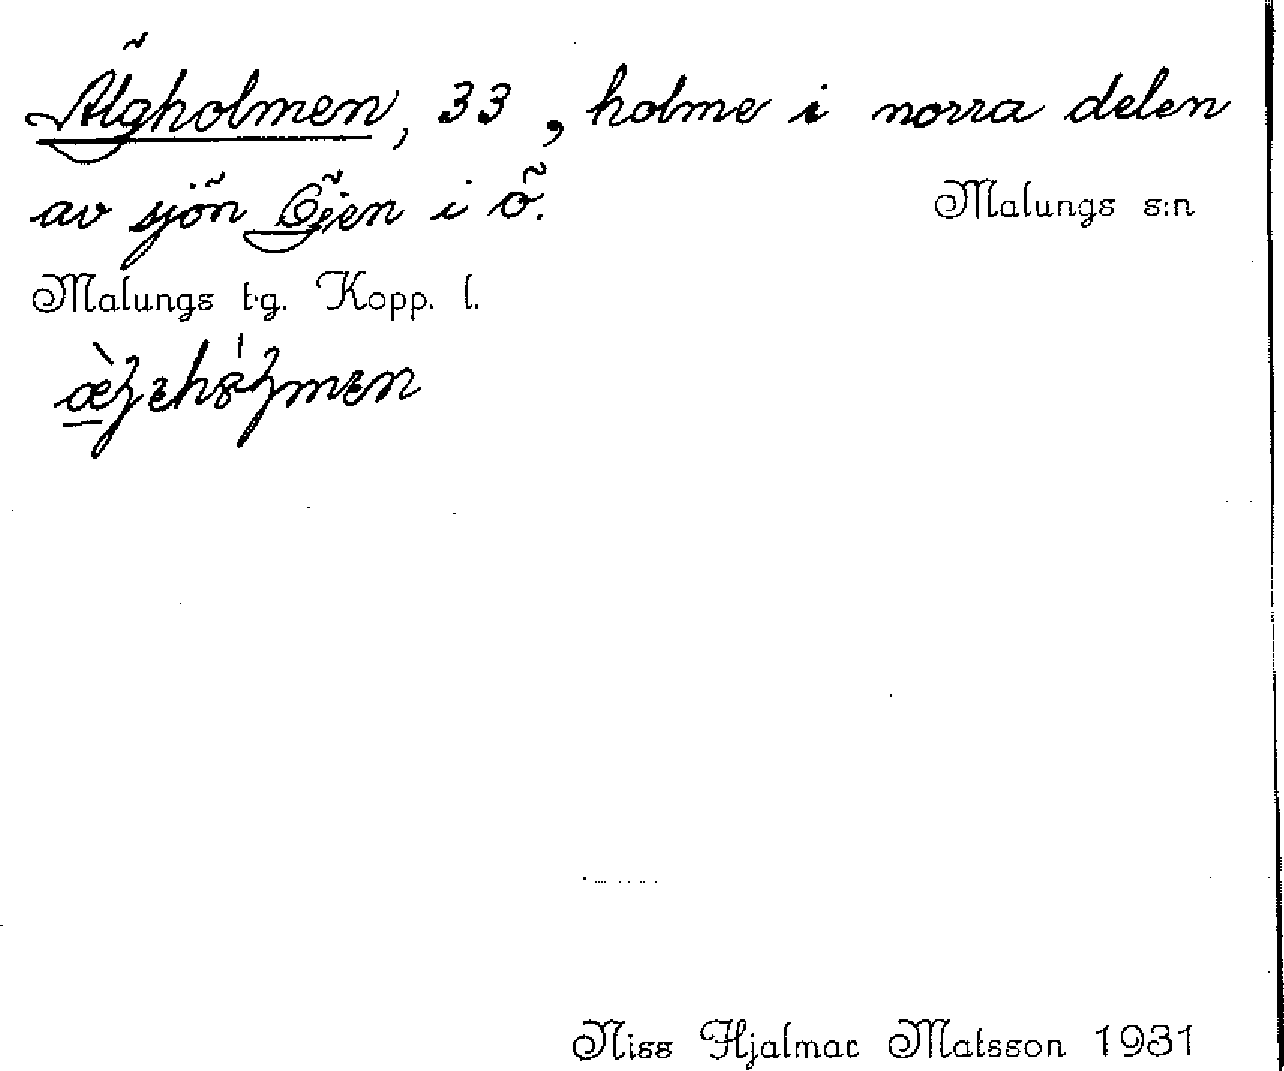 Älgholmen, 33, holme i norra delen
av sjön Öjen i ö. Malungs s:n
Malungs t.g. Kopp. l.
Niss Hjalmar Matsson 1931